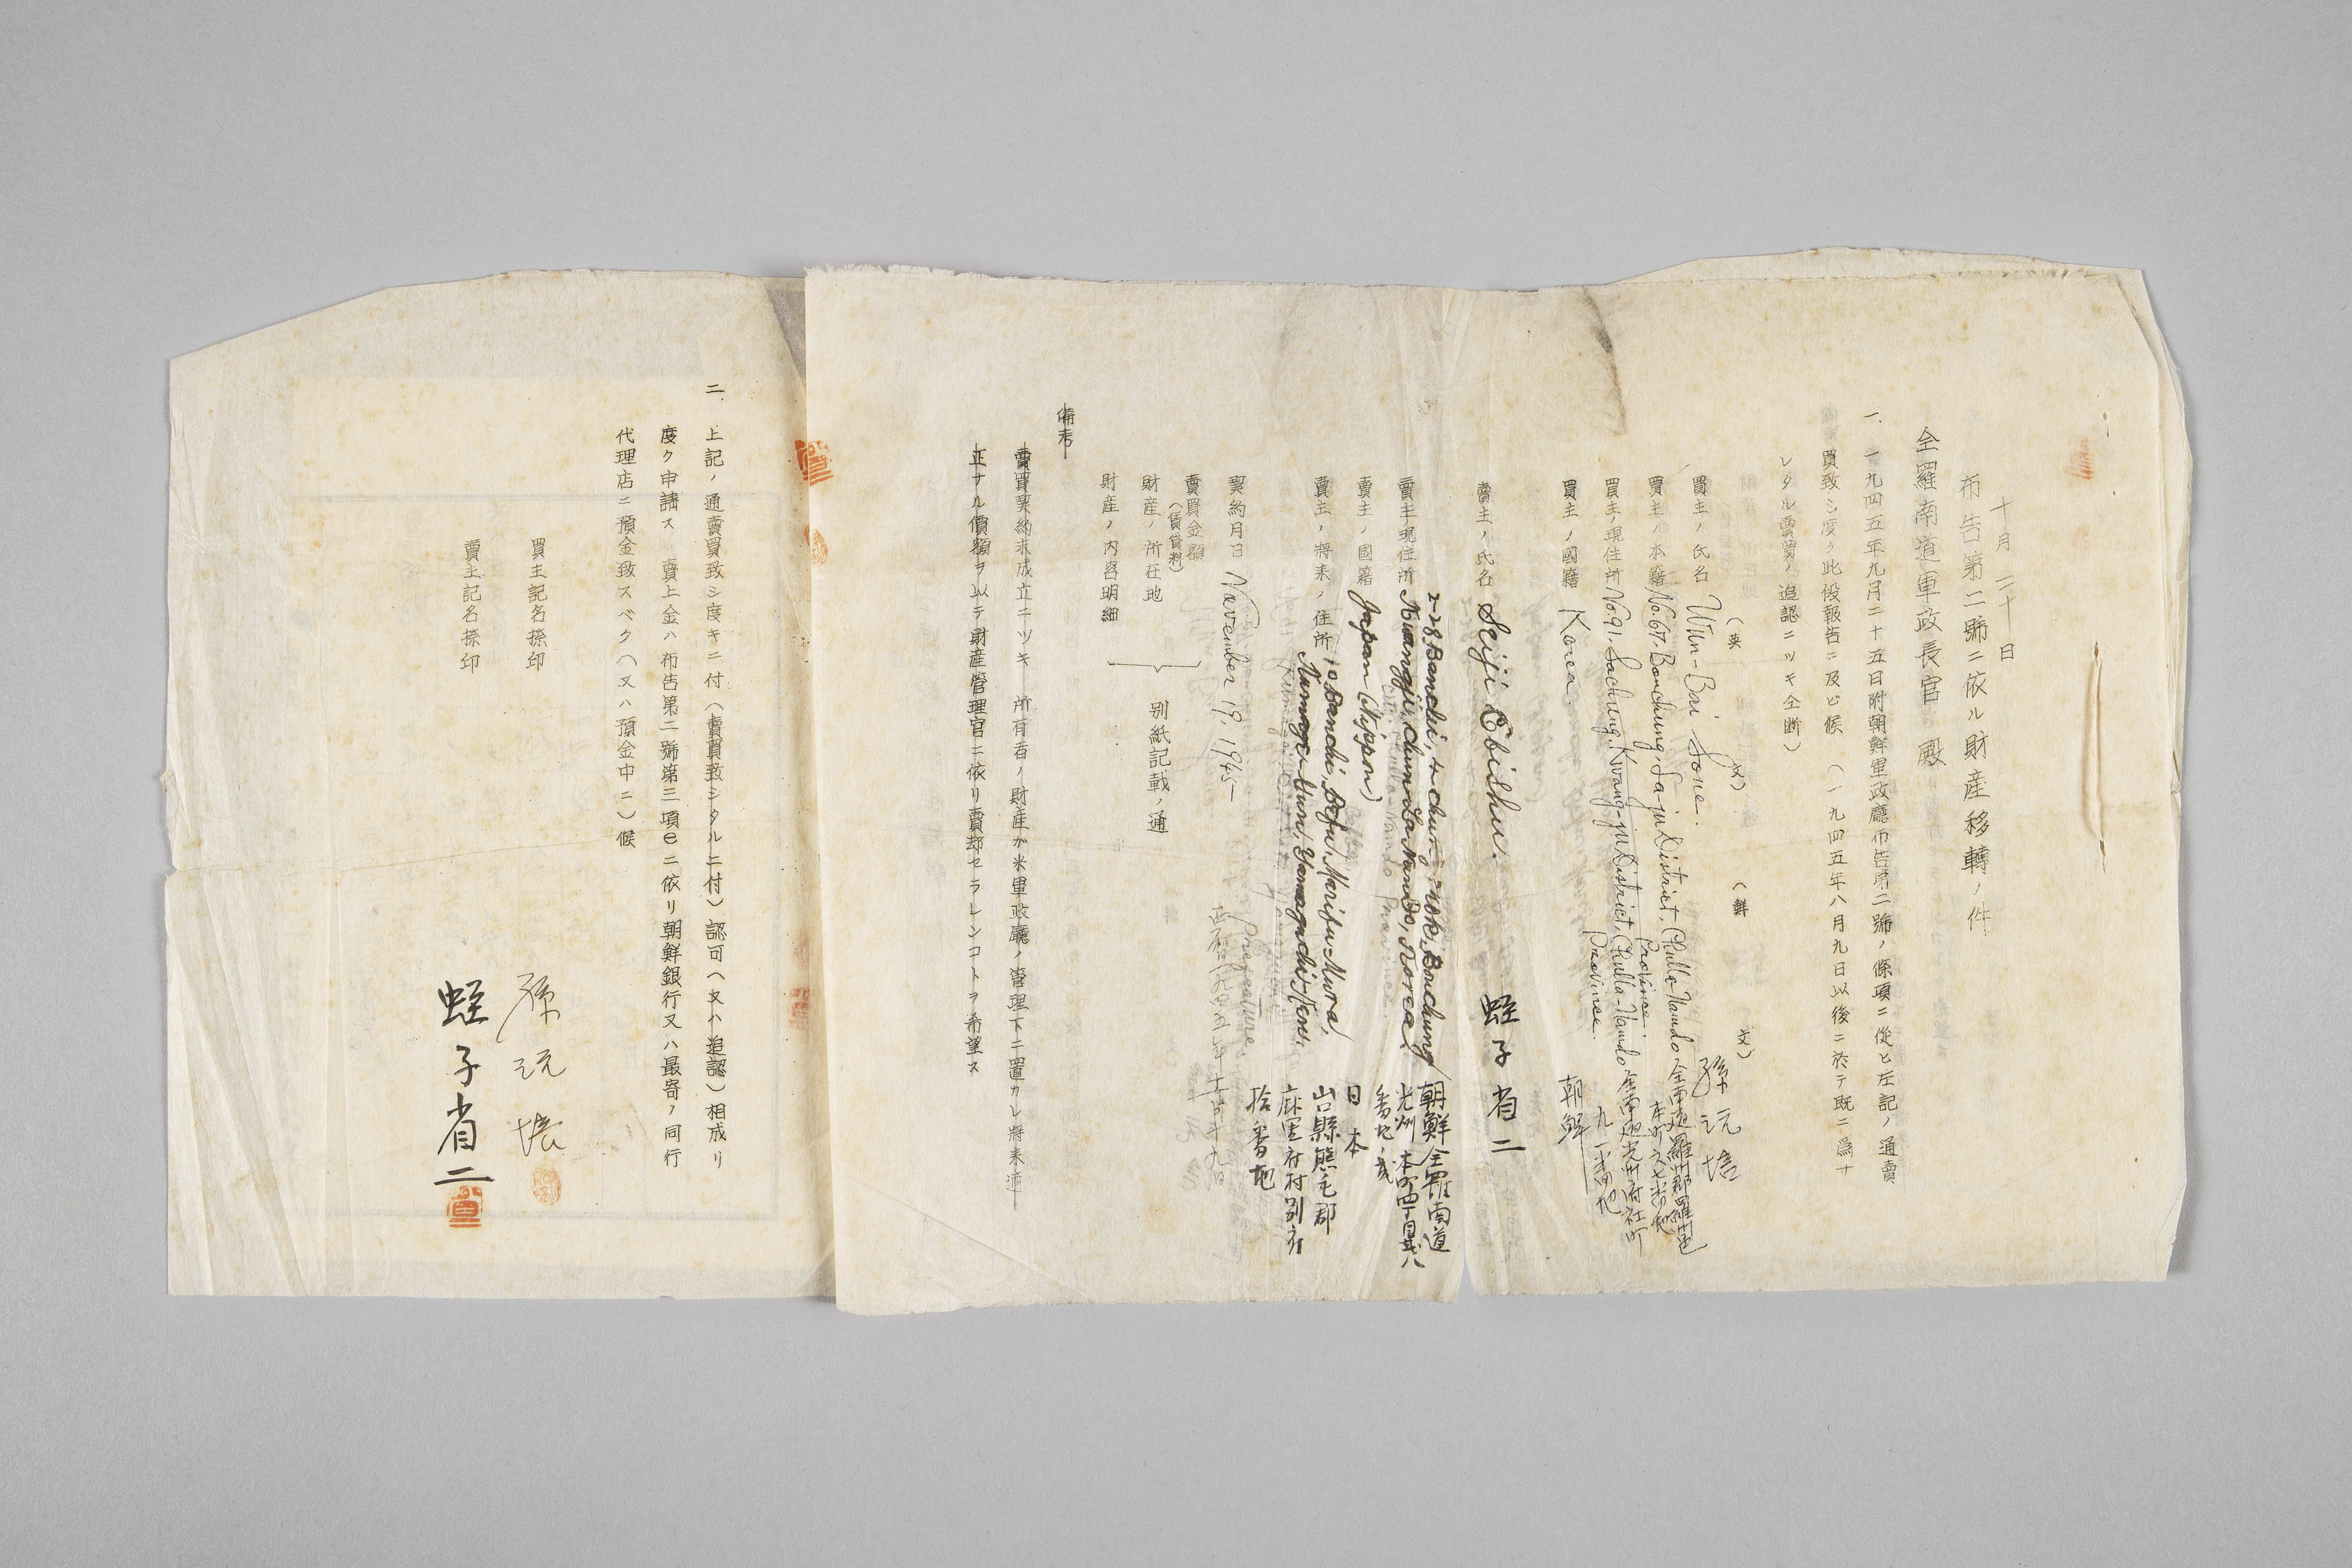 十月二十日
布告第二號ニ依ル財産移轉ノ件
全羅南道軍政長官 殿
一、一九四五年九月二十五日附朝鮮軍政廳布告第二號ノ條項ニ從ヒ左記ノ通賣
買致シ度ク此段報告ニ及ヒ候 (一九四五年八月九日以後ニ於テ既ニ爲サ
レタル賣買ノ追認ニツキ仝断)
(英 文) (鮮 文)
買主ノ氏名 Wun-Bai Sone. 孫沅培
買主ノ本籍 No.67. Bonchung, La-ju District, Chulla-Namdo Province. 全南道羅州郡羅州邑本町六七番地
買主ノ現住所 No.91. Sachung, Kwang-ju District, Chulla-Namdo Province. 全南道光州府社町九一番地
買主ノ國籍 Korea. 朝鮮
賣主ノ氏名 Seiji Ebishu. 蛭子省二
賣主ノ現住所 2-28 Banchi, 4-chung-mok, Bonchung, Kwangju, Chun-La-Nando, Korea. 朝鮮全羅南道光州本町四丁目貳八番地ノ貳
賣主ノ國籍 Japan (Nippon) 日本
賣主ノ將來ノ住所 10 Banchi, Befu, Marifu-Mura, Kumage-Gun, Yamaguchi-Ken. 山口縣熊毛郡麻里府村別府拾番地
契約月日 November 19. 1945 西暦一九四五年十一月十九日
賣買金額
(賃貸料)
財産ノ所在地
財産ノ内容明細
別紙記載ノ通
備考
賣買契約未成立ニツキ 所有者ノ財産ガ米軍政廳ノ管理下ニ置カレ將來適
正ナル價額ヲ以テ財産管理官ニ依リ賣却セラレンコトヲ希望ス
二、上記ノ通賣買致シ度キニ付(賣買致シタルニ付)認可(又ハ追認)相成リ
度ク申請ス 賣上金ハ布告第二號第三項eニ依リ朝鮮銀行又ハ最寄ノ同行
代理店ニ預金致スベク(又ハ預金中ニ)候
買主記名捺印 孫沅培
賣主記名捺印 蛭子省二